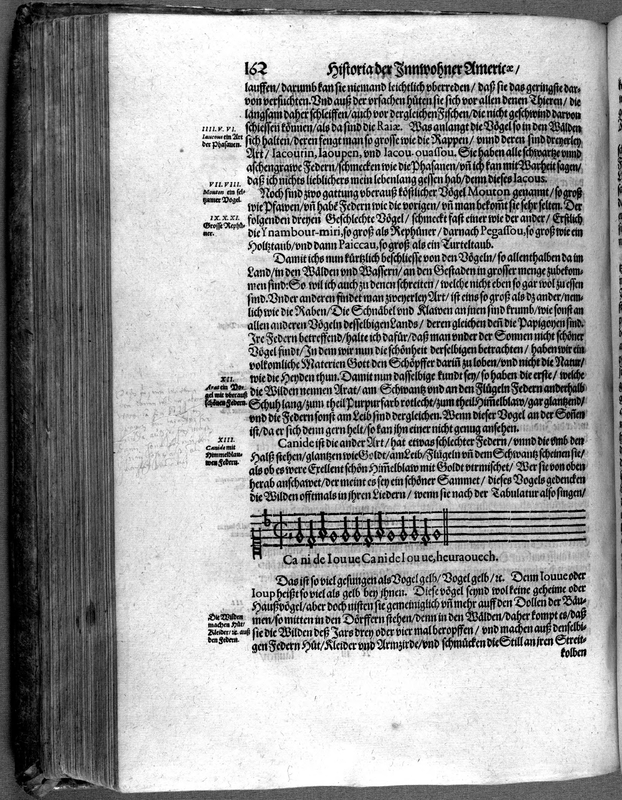 162 Historia der Innwohner Americæ/
lauffen/darumb kan sie niemand leichtlich vberreden/ daß sie das geringste dar-
von versuchten. Vnd auß der vrsachen hüten sie sich vor allen denen Thieren/ die
langsam daher schleiffen/auch vor dergleichen Fischen/die nicht geschwind darvon
schiessen können/als da sind die Raiæ. Was anlangt die Vögel so in den Wälden
sich halten/deren fengt man so grosse wie die Rappen/ vnnd deren sind dreyerley
Art/ Iacourin, Iaoupen, vnd Iacou-ouassou. Sie haben alle schwartze vnnd
aschengrawe Federn/schmecken wie die Phasanen/vñ ich kan mit Warheit sagen/
daß ich nichts lieblichers mein lebenlang gessen hab/denn diesen Iacous.
IIII. V. VI.
Iacous ein Art
der Phasanen.
Noch sind zwo gattung vberauß köstlicher Vögel Mouton genannt/so groß
wie Pfawen/vñ habē Federn wie die vorigen/ vñ man bekomt sie sehr selten. Der
folgenden dreyen Geschlechte Vögel/ schmeckt fast einer wie der ander/ Erstlich
die Ynambour-miri, so groß als Rephüner/ darnach Pegassou, so groß wie ein
Holtztaub/vnd dann Paiccau, so groß als ein Turteltaub.
VII. VIII.
Mouton ein sel-
tzamer Vogel.
IX. X. XI.
Grosse Rephü-
ner.
Damit ichs nun kürtzlich beschliesse von den Vögeln/ so allenthalben da im
Land/in den Wälden vnd Wassern/ an den Gestaden in grosser menge zubekom-
men sind: So wil ich auch zu denen schreiten/ welche nicht eben so gar wol zu essen
sind. Vnder anderen findet man zweyerley Art/ ist eins so groß als dz ander/nem-
lich wie die Raben/ Die Schnäbel vnd Klawen an jnen sind krumb/wie sonst an
allen anderen Vögeln desselbigen Lands/ deren gleichen deñ die Papigoyen sind.
Ire Federn betreffend/halte ich dafür/daß man vnder der Sonnen nicht schöner
Vögel findt/ In dem wir nun die schönheit derselbigen betrachten/ haben wir ein
volkomliche Materien Gott den Schöpffer dariñ zu loben/vnd nicht die Natur/
wie die Heyden thun. Damit nun dasselbige kundt sey/ so haben die erste/ welche
die Wilden nennen Arat/ am Schwantz vnd an den Flügeln Federn anderhalb
Schuh lang/zum theil Purpurfarb rotlecht/zum theil Him̃elblaw/gar glantzend/
vnd die Federn sonst am Leib sind dergleichen. Wenn dieser Vogel an der Soñen
ist/da er sich denn gern helt/ so kan jhn einer nicht genug ansehen.
XII.
Arat ein Vo-
gel mit vberauß
schönen Federn.
Canide ist die ander Art/ hat etwas schlechter Federn/ vnnd die vmb den
Halß stehen/glantzen wie Goldt/am Leib/Flügeln vñ dem Schwantz scheinen sie/
als ob es were Exellent schön Him̃elblaw mit Goldt vermischet/ Wer sie von oben
herab anschawet/der meint es sey ein schöner Sammet/ dieses Vogels gedencken
die Wilden offtmals in jhren Liedern/ wenn sie nach der Tabulatur also singen/
XIII.
Canide mit
Himmelblau-
wen Federn.
Ca ni de I ou ue Ca ni de I ou ue, heuraouech.
Das ist so viel gesungen als Vogel gelb/ Vogel gelb/ ɾc. Denn Iouue oder
Ioup heißt so viel als gelb bey jhnen. Diese vögel seynd wol keine geheime oder
Haußvögel/aber doch nisten sie gemeiniglich vñ mehr auff den Dollen der Bäu-
men/so mitten in den Dörffern stehen/denn in den Wälden/daher kompt es/daß
sie die Wilden deß Jars drey oder vier mal beropffen/ vnd machen auß denselbi-
gen Federn Hüt/Kleider vnd Armzirde/vnd schmücken die Still an jren Streit-
kolben
Die Wilden
machen Hüt/
Kleider/ɾc. auß
den Federn.